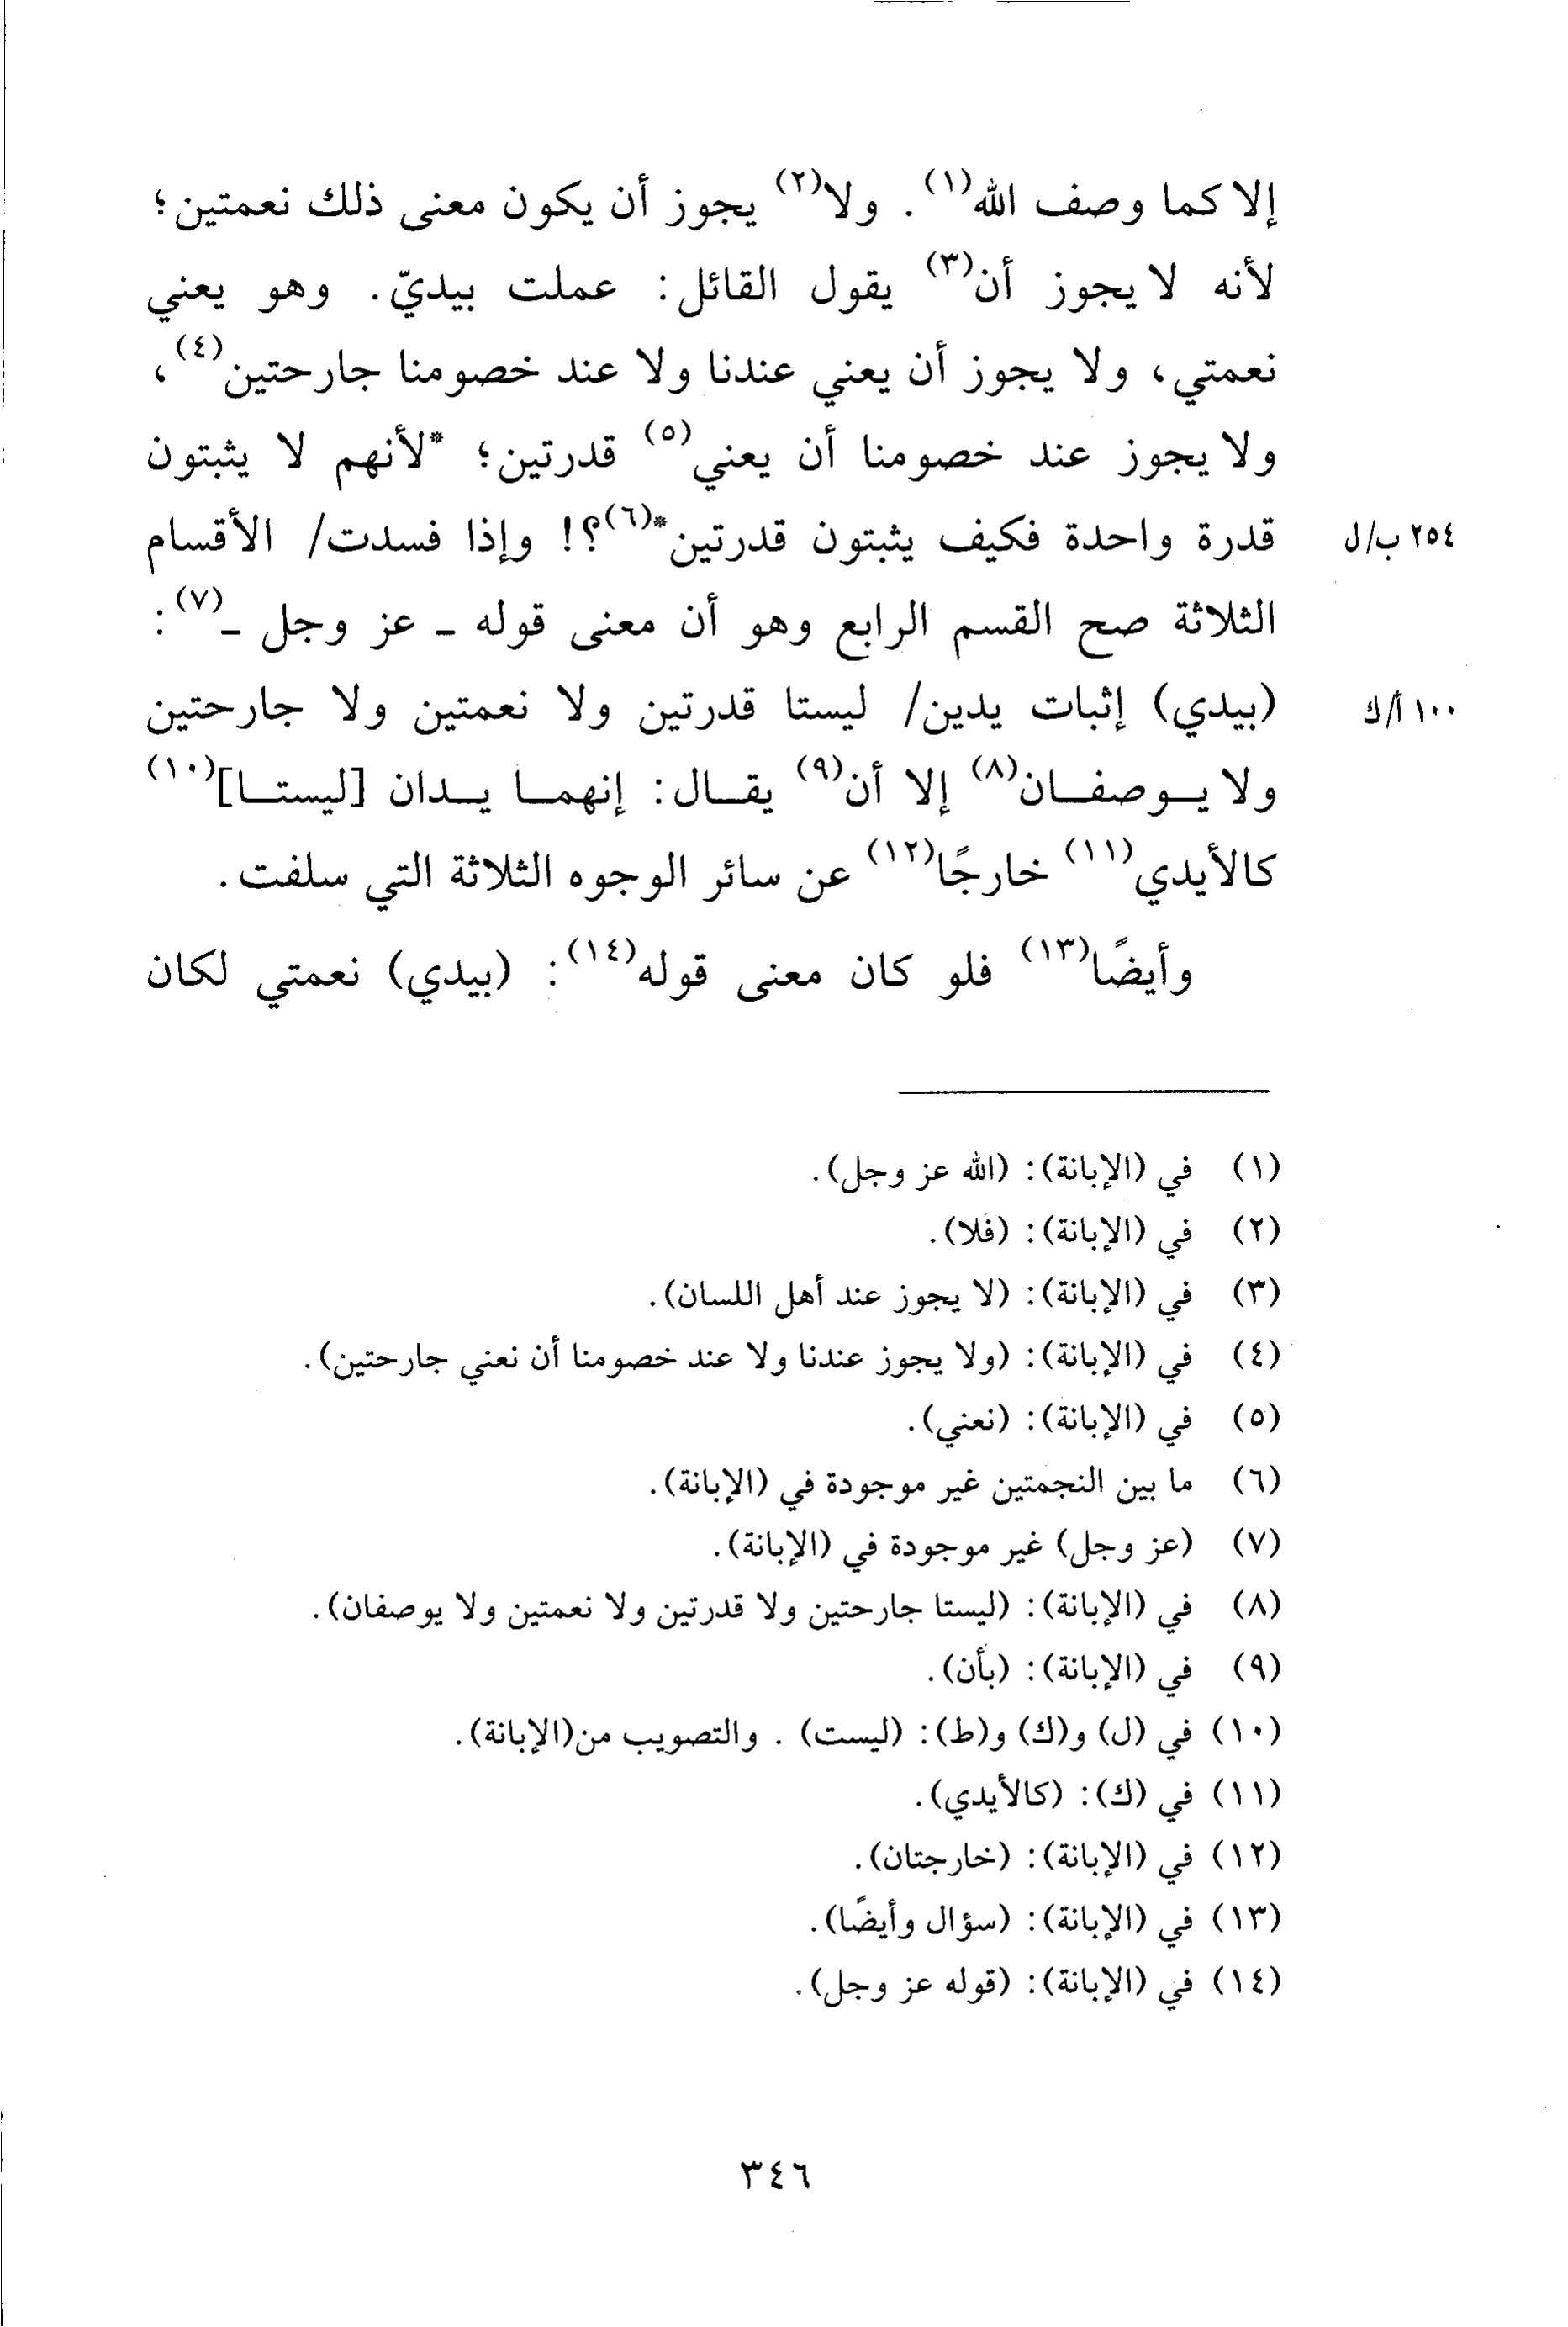 إلا كما وصف الله(١). ولا(٢) يجوز أن يكون معنى ذلك نعمتين؛
لأنه لا يجوز أن(٣) يقول القائل: عملت بيديّ. وهو يعني
نعمتي، ولا يجوز أن يعني عندنا ولا عند خصومنا جارحتين(٤)،
ولا يجوز عند خصومنا أن يعني(٥) قدرتين؛ *لأنهم لا يثبتون
قدرة واحدة فكيف يثبتون قدرتين*(٦)؟! وإذا فسدت/ الأقسام
٢٥٤ ب/ل
الثلاثة صح القسم الرابع وهو أن معنى قوله ـ عز وجل ـ(٧):
(بيدي) إثبات يدين/ ليستا قدرتين ولا نعمتين ولا جارحتين
١٠٠ أ/ك
ولا يـوصفـان(٨) إلا أن(٩) يقـال: إنهمـا يـدان [ليستـا](١٠)
كالأيدي(١١) خارجًا(١٢) عن سائر الوجوه الثلاثة التي سلفت.
وأيضًا(١٣) فلو كان معنى قوله(١٤): (بيدي) نعمتي لكان
(١) في (الإبانة): (الله عز وجل).
(٢) في (الإبانة): (فلا).
(٣) في (الإبانة): (لا يجوز عند أهل اللسان).
(٤) في (الإبانة): (ولا يجوز عندنا ولا عند خصومنا أن نعني جارحتين).
(٥) في (الإبانة): (نعني).
(٦) ما بين النجمتين غير موجودة في (الإبانة).
(٧) (عز وجل) غير موجودة في (الإبانة).
(٨) في (الإبانة): (ليستا جارحتين ولا قدرتين ولا نعمتين ولا يوصفان).
(٩) في (الإبانة): (بأن).
(١٠) في (ل) و(ك) و(ط): (ليست). والتصويب من(الإبانة).
(١١) في (ك): (كالأيدي).
(١٢) في (الإبانة): (خارجتان).
(١٣) في (الإبانة): (سؤال وأيضًا).
(١٤) في (الإبانة): (قوله عز وجل).
٣٤٦